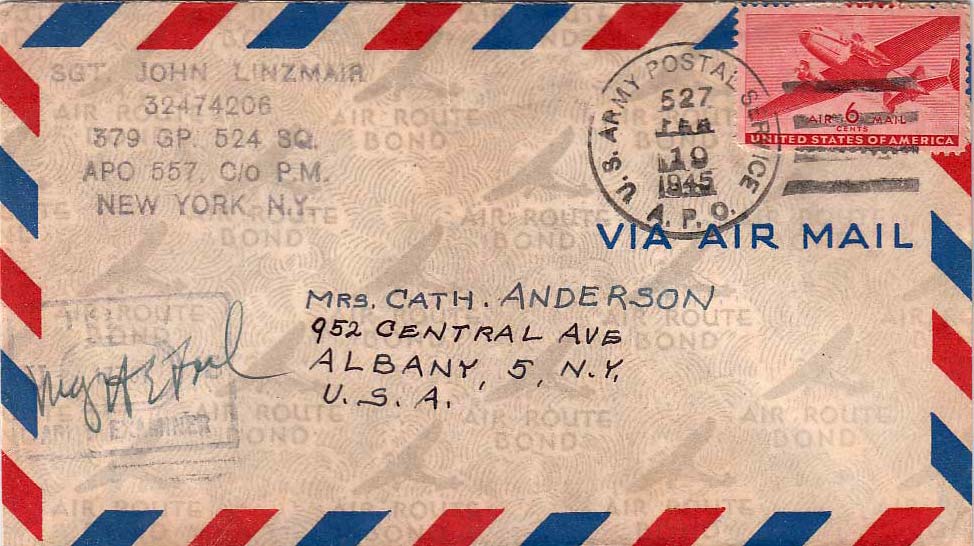 SGT. JOHN LINZMAIR
32474206
379 GP. 524 SQ.
APO 557, C/O P.M.
NEW YORK, N.Y.
U.S. ARMY POSTAL SERVICE
A.P.O.
527
FEB
19
1945
AIR 6 MAIL
CENTS
UNITED STATES OF AMERICA
VIA AIR MAIL
MRS. CATH. ANDERSON
952 CENTRAL AVE
ALBANY, 5, N.Y.
U. S. A.
EXAMINER
AIR ROUTE
BOND